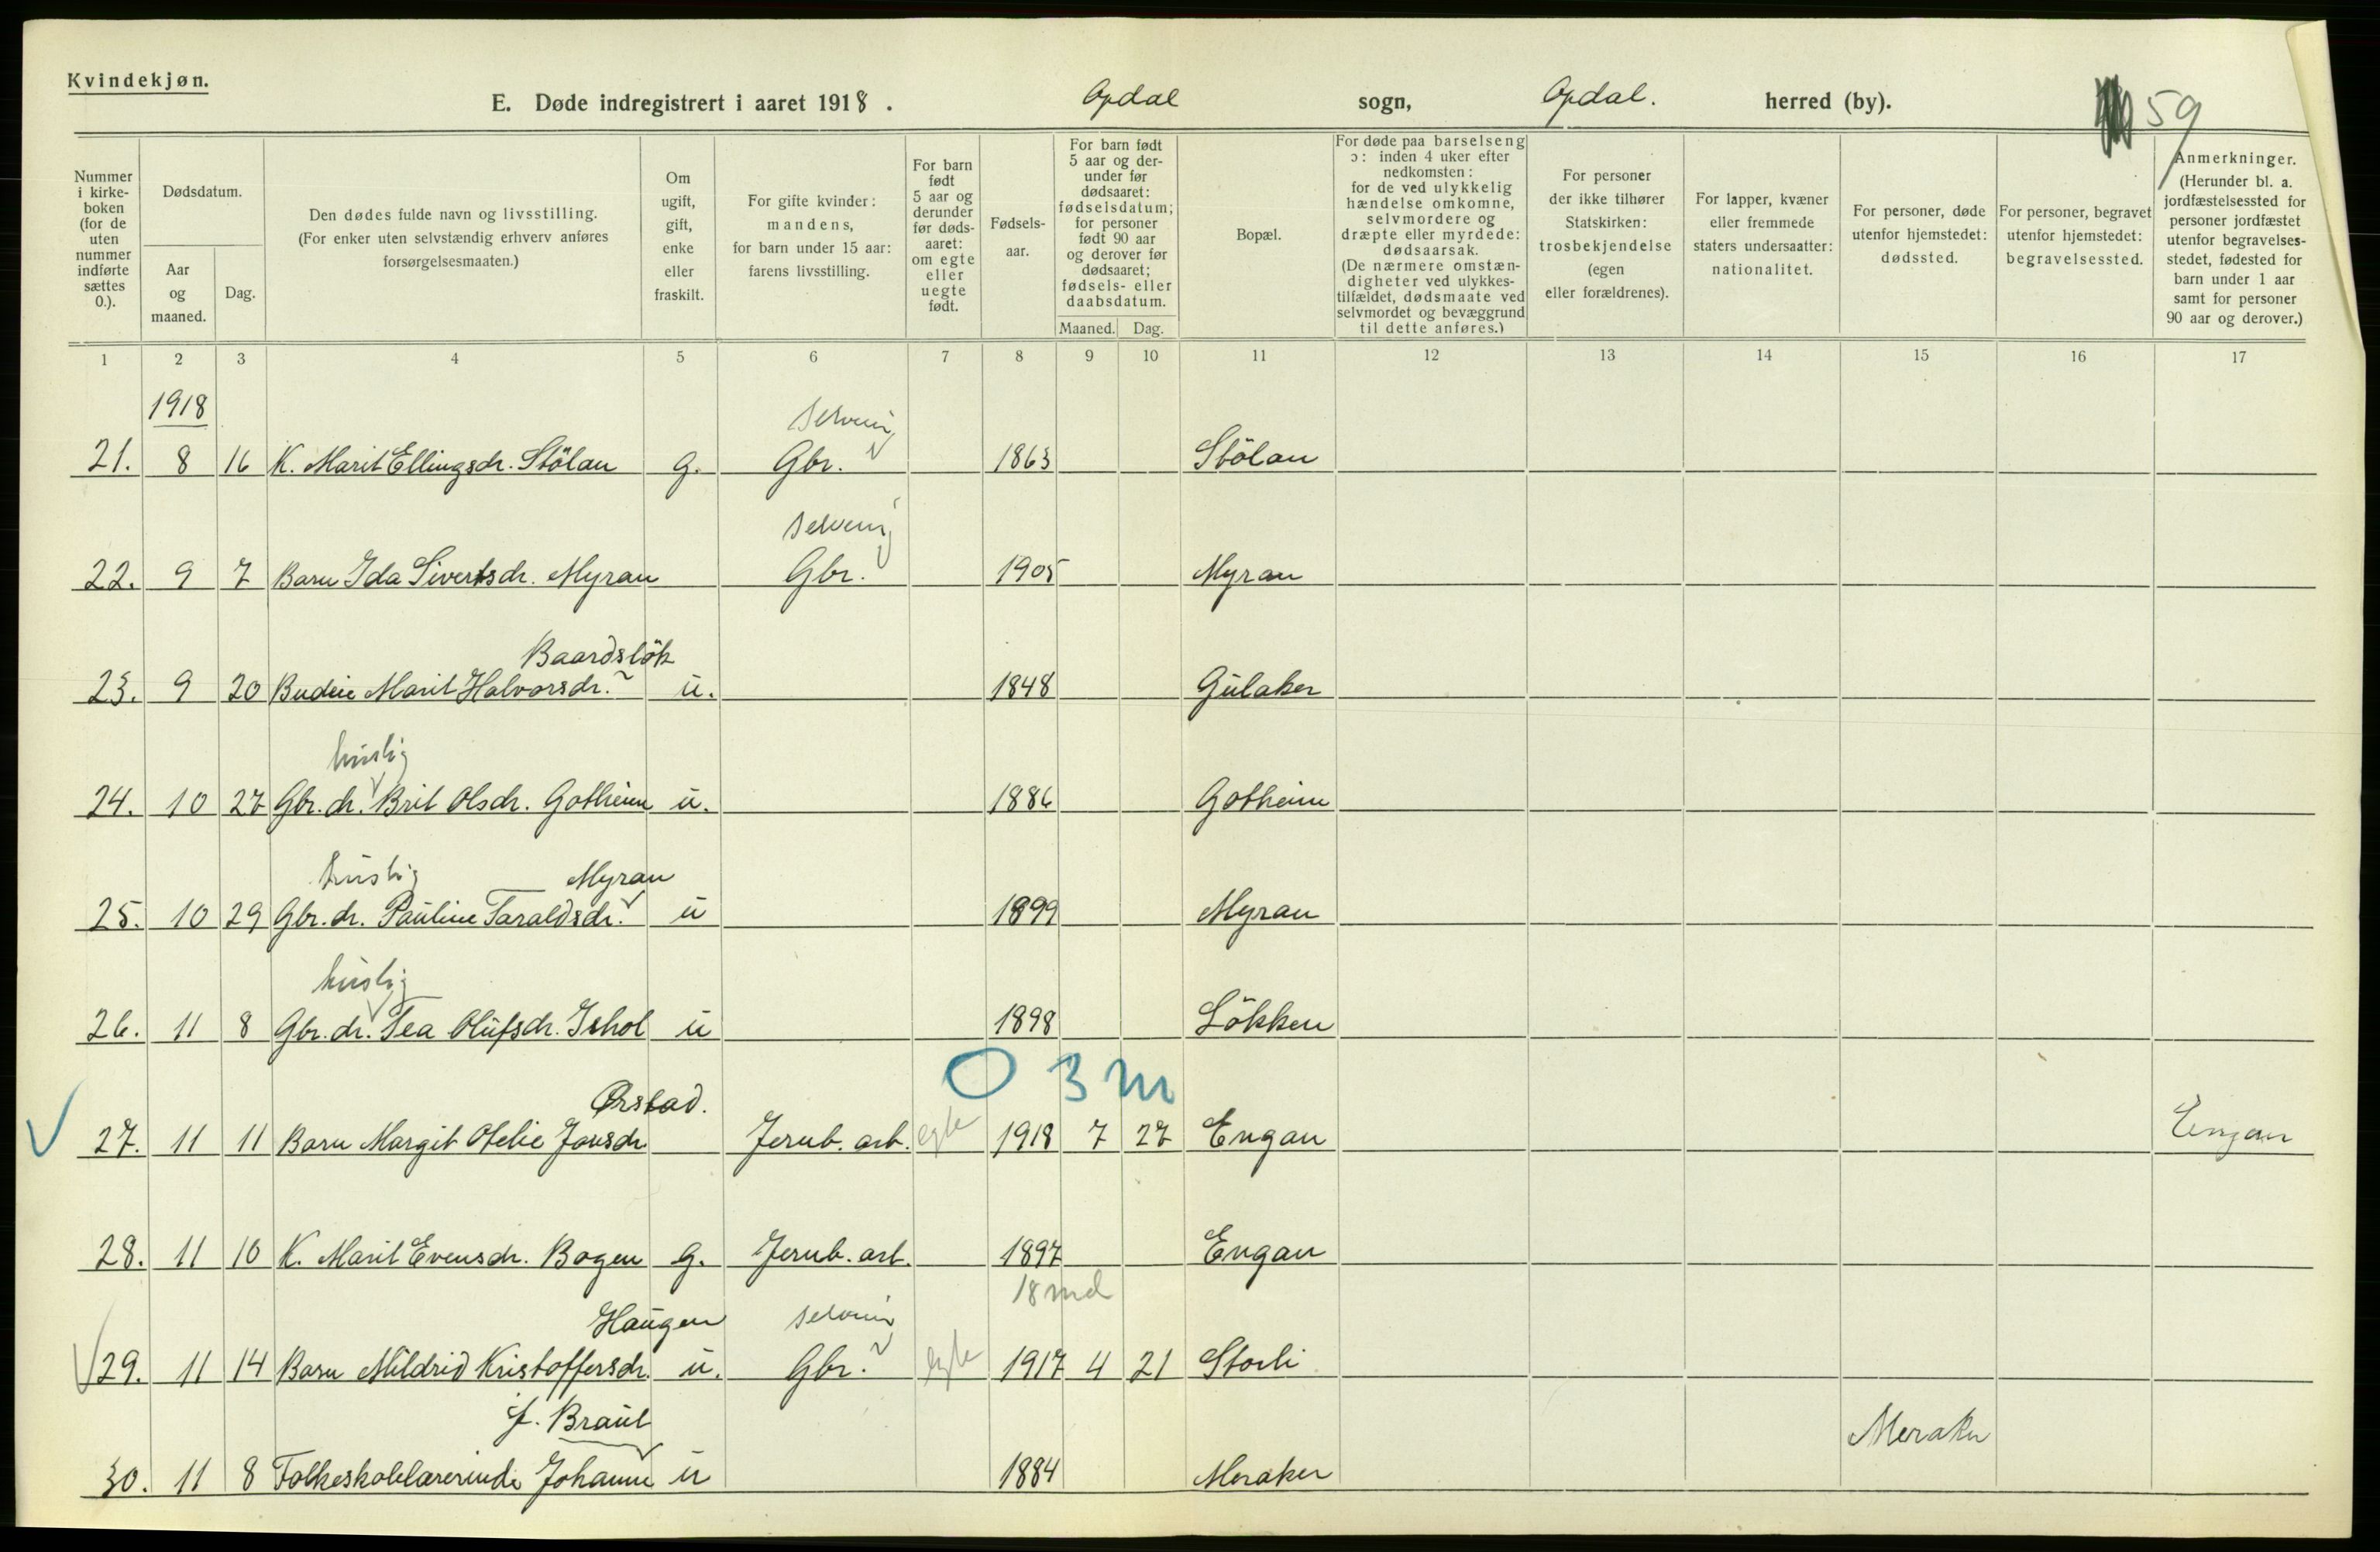 Kvindekjøn.
E. Døde indregistrert i aaret 1918. Opdal sogn, Opdal. herred (by).
59
Nummer i kirke-boken (for de uten nummer indførte sættes 0.).
Dødsdatum.
Aar og maaned.
Dag.
Den dødes fulde navn og livsstilling.
(For enker uten selvstændig erhverv anføres
forsørgelsesmaaten.)
Om ugift, gift, enke eller fraskilt.
For gifte kvinder:
mandens,
for barn under 15 aar:
farens livsstilling.
For barn født 5 aar og derunder før døds-aaret: om egte eller uegte født.
Fødsels-aar.
For barn født 5 aar og der-under før dødsaaret: fødselsdatum; for personer født 90 aar og derover før dødsaaret; fødsels- eller daabsdatum.
Maaned. Dag.
Bopæl.
For døde paa barselseng
ɔ: inden 4 uker efter
nedkomsten:
for de ved ulykkelig
hændelse omkomne,
selvmordere og
dræpte eller myrdede:
dødsaarsak.
(De nærmere omstæn-
digheter ved ulykkes-
tilfældet, dødsmaate ved
selvmordet og bevæggrund
til dette anføres.)
For personer
der ikke tilhører
Statskirken:
trosbekjendelse
(egen
eller forældrenes).
For lapper, kvæner
eller fremmede
staters undersaatter:
nationalitet.
For personer, døde
utenfor hjemstedet:
dødssted.
For personer, begravet
utenfor hjemstedet:
begravelsessted.
Anmerkninger.
(Herunder bl. a.
jordfæstelsessted for
personer jordfæstet
utenfor begravelses-
stedet, fødested for
barn under 1 aar
samt for personer
90 aar og derover.)
1 2 3 4 5 6 7 8 9 10 11 12 13 14 15 16 17
1918
selveier
21. 8 16 K. Marit Ellingsdr. Stölan g. Gbr. 1863 Stölan
selveier
22. 9 7 Barn Ida Sivertsdr. Myran Gbr. 1905 Myran
Baardslök
23. 9 20 Budeie Marit Halvorsdr. u. 1848 Gulaker
huslig
24. 10 27 Gbr. dr. Brit Olsdr. Gotheim u. 1886 Gotheim
huslig Myran
25. 10 29 Gbr. dr. Pauline Taraldsdr. u 1899 Myran
huslig
26. 11 8 Gbr. dr. Tea Olufsdr. Ishol u 1898 Lökken
0 3 m
Ørstad.
27. 11 11 Barn Margit Ofelie Jonsdr Jernb. arb. egte 1918 7 27 Engan Engan
28. 11 10 K. Marit Evensdr. Bogen g. Jernb. arb. 1897 Engan
18 md
Haugen selveier
29. 11 14 Barn Mildrid Kristoffersdr. u. Gbr. egte 1917 4 21 Storli
f. Braut Meraker
30. 11 8 Folkeskolelærerinde Johanne u 1884 Meraker